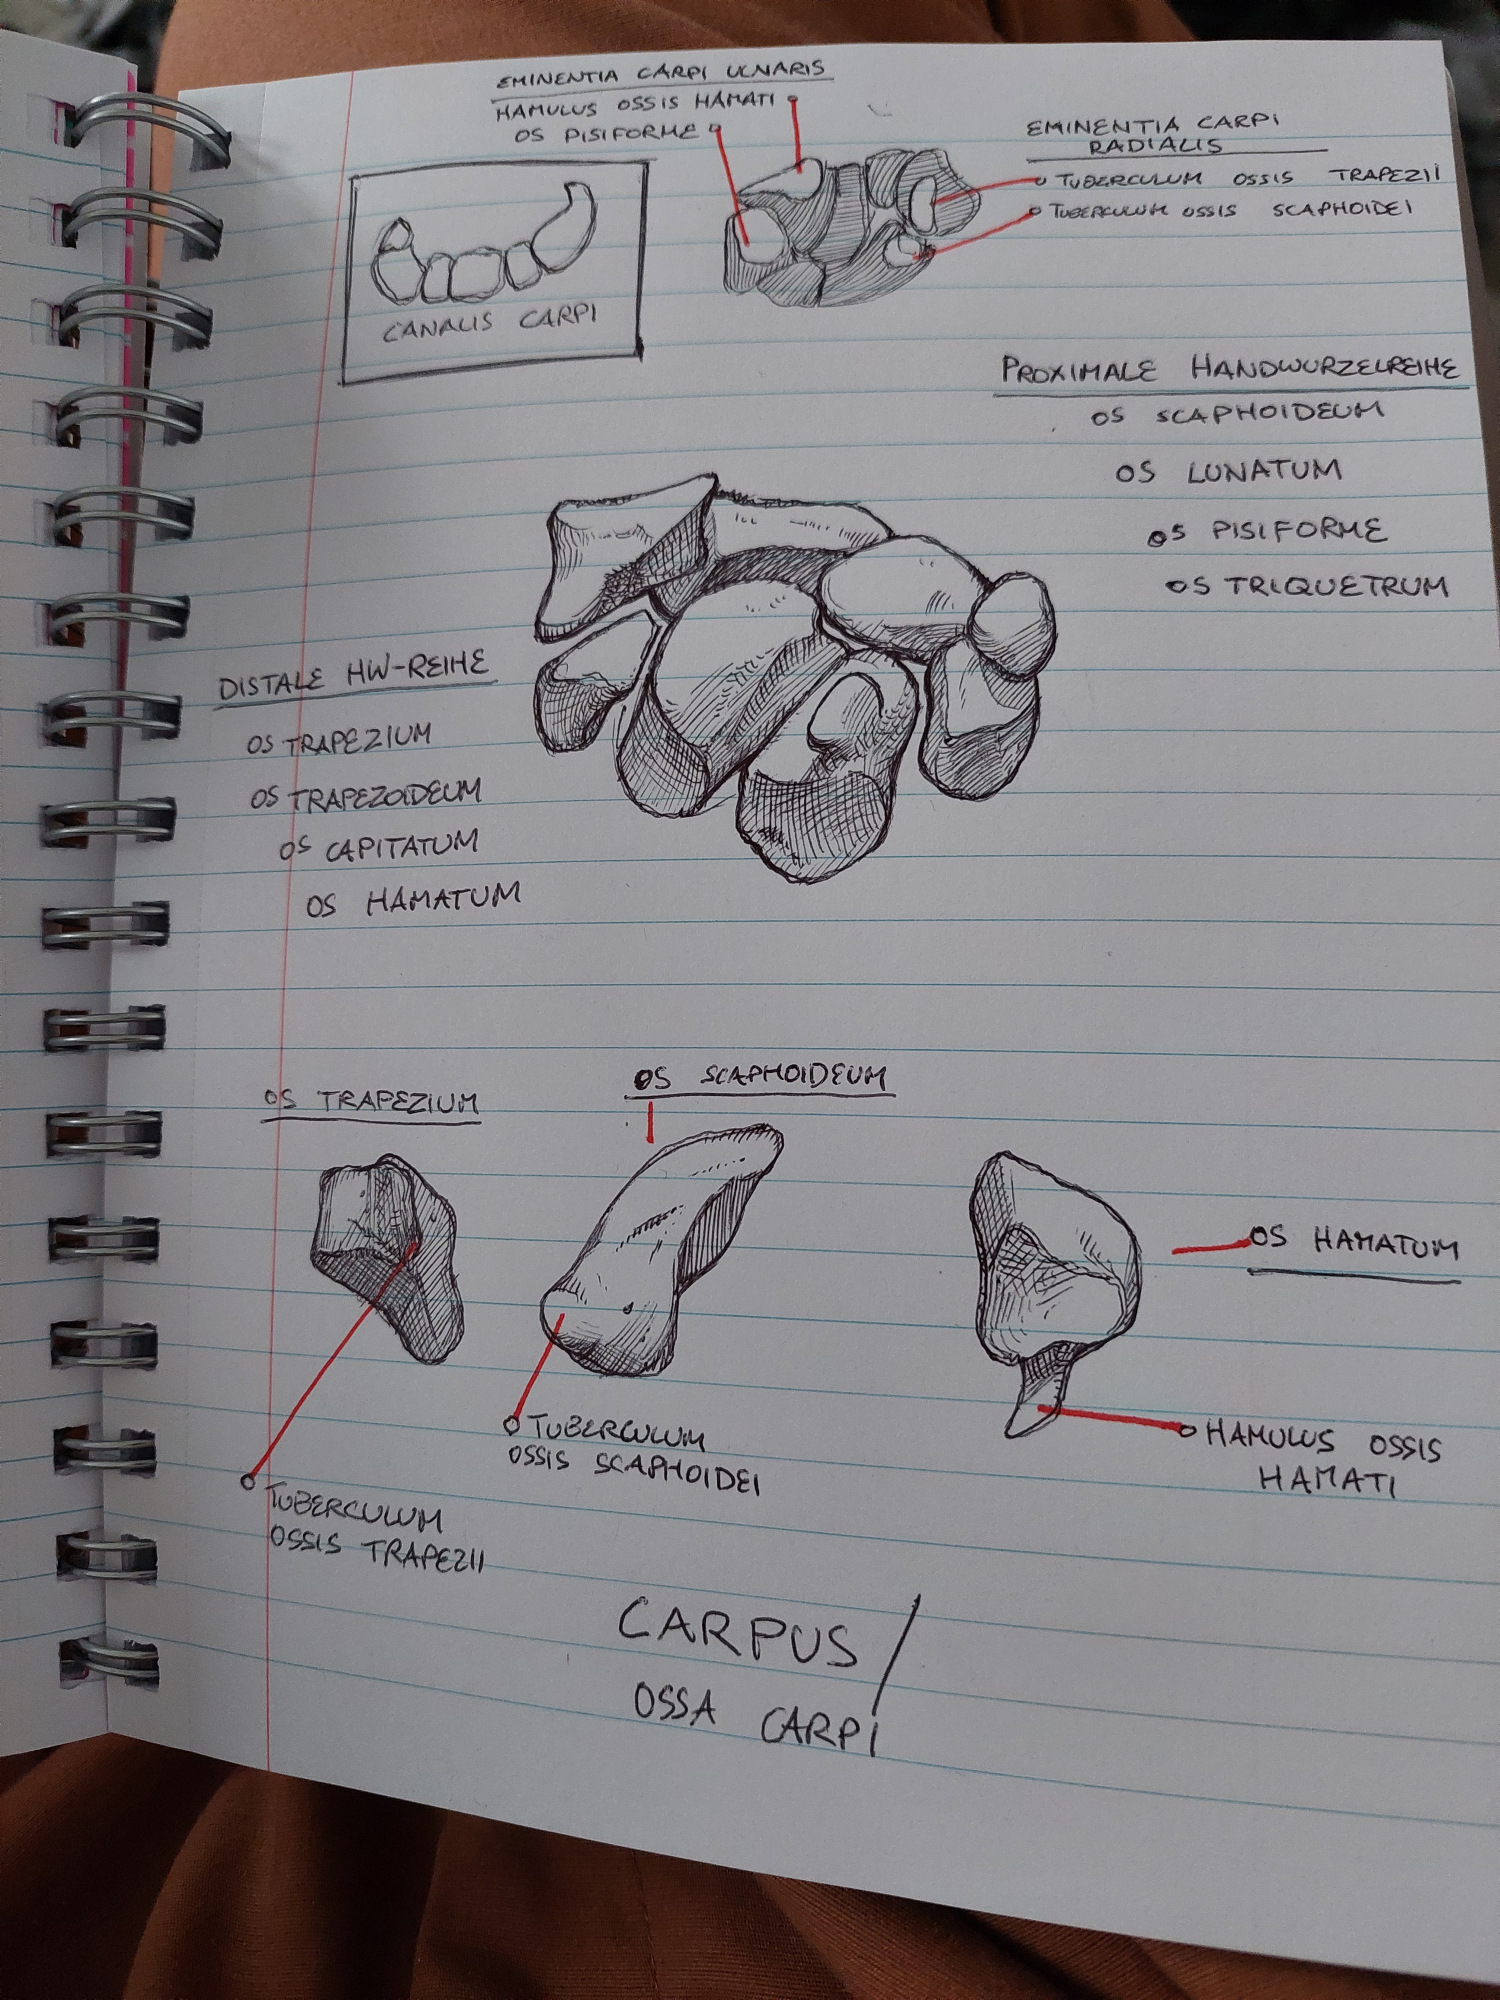 EMINENTIA CARPI ULNARIS
HAMULUS OSSIS HAMATI
OS PISIFORME
EMINENTIA CARPI
RADIALIS
TUBERCULUM OSSIS TRAPEZII
TUBERCULUM OSSIS SCAPHOIDEI
CANALIS CARPI
PROXIMALE HANDWURZELREIHE
OS SCAPHOIDEUM
OS LUNATUM
OS PISIFORME
OS TRIQUETRUM
DISTALE HW-REIHE
OS TRAPEZIUM
OS TRAPEZOIDEUM
OS CAPITATUM
OS HAMATUM
OS TRAPEZIUM
OS SCAPHOIDEUM
OS HAMATUM
TUBERCULUM
OSSIS SCAPHOIDEI
HAMULUS OSSIS
HAMATI
TUBERCULUM
OSSIS TRAPEZII
CARPUS /
OSSA CARPI